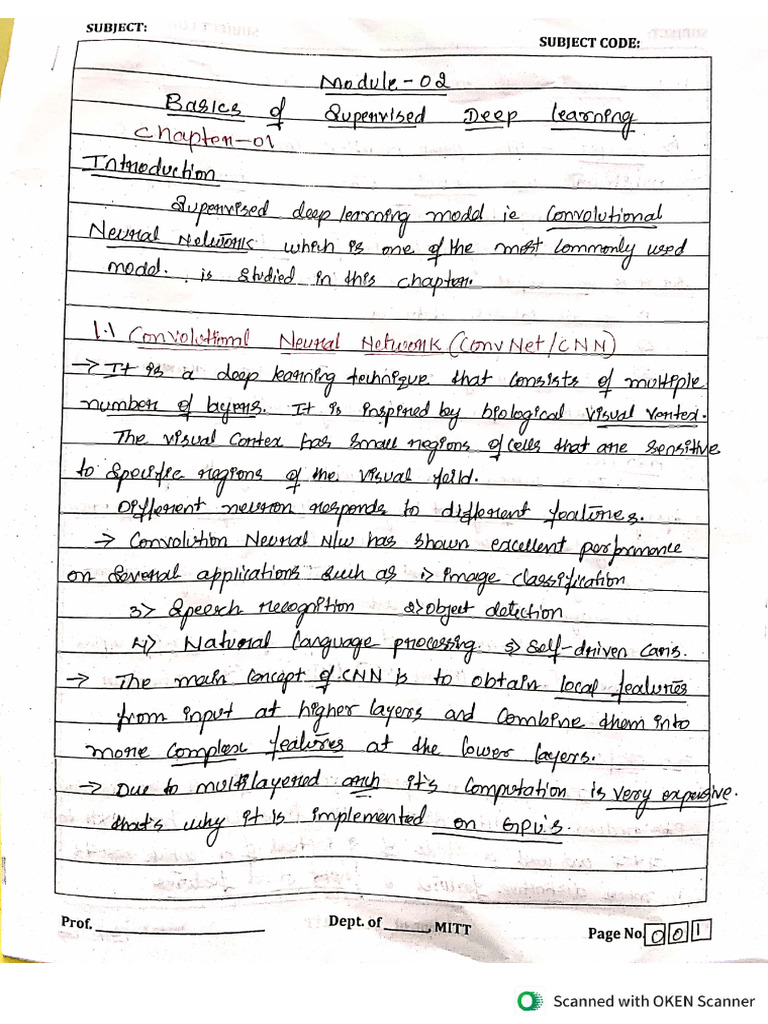 SUBJECT:
SUBJECT CODE:
Module-02
Basics of Supervised Deep learning
Chapter-01
Introduction
Supervised deep learning model ie Convolutional
Neural Network which is one of the most commonly used
model. is studied in this chapter.
1.1 Convolutional Neural Network (ConvNet/CNN)
→ It is a deep learning technique that consists of multiple
number of layers. It is inspired by biological visual vontex.
The visual Contex has small regions of cells that are sensitive
to specific regions of the visual feild.
Different neuron responds to different features.
→ Convolution Neural N/w has shown excellent performance
on several applications such as 1> image classification
3> Speech recognition 2> object detection
4> Natural language processing. 5> Self-driven Cars.
→ The main concept of CNN is to obtain local features
from input at higher layers and combine them into
more complex features at the lower layers.
→ Due to multilayered arch it's Computation is very expensive.
that's why it is implemented on GPU's.
Prof.
Dept. of MITT
Page No. 001
Scanned with OKEN Scanner